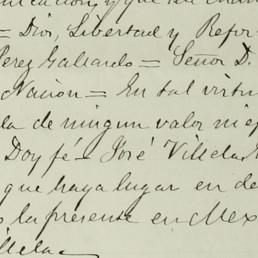 y que
= Dios, Libertad y Refor
Perez Gallardo = Señor D.
Nacion = En tal virtu
la de ningun valor ni ef
Doy fé = José Villela.
que haya lugar en de
s la presente en Mex
illela =